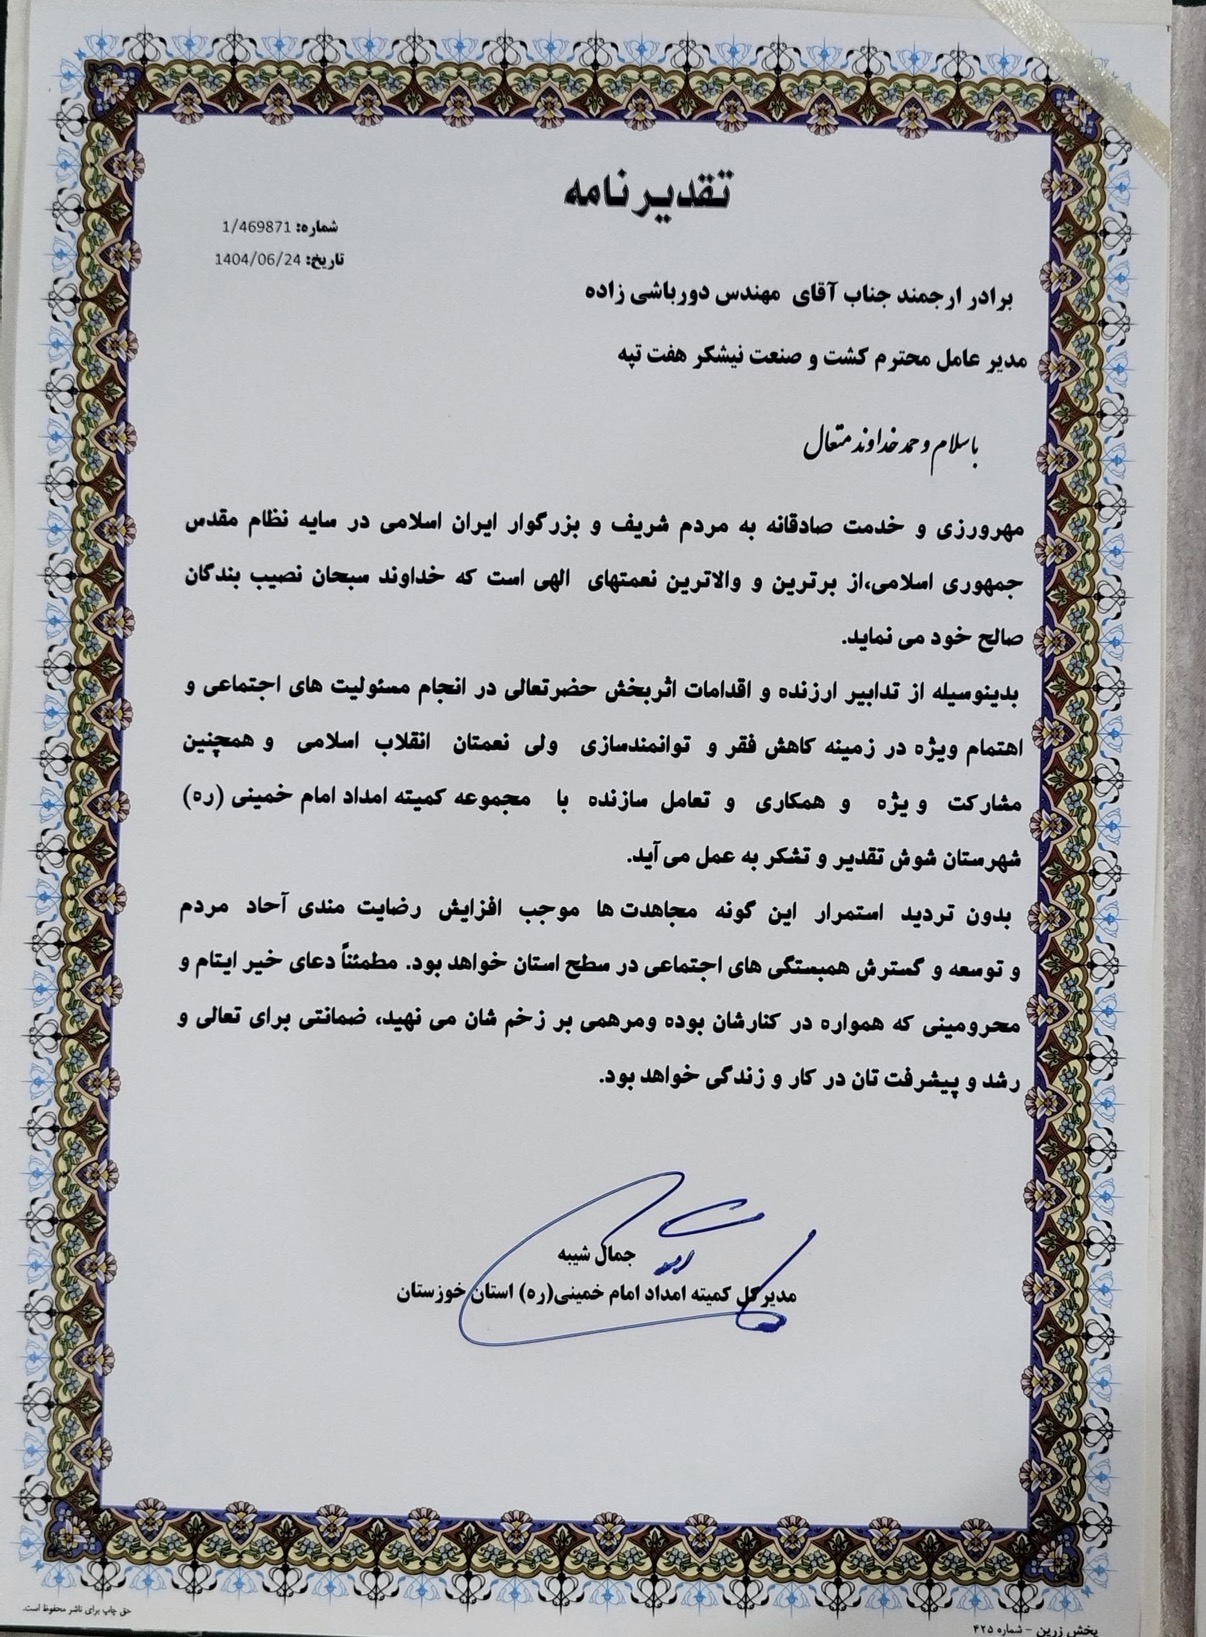 تقدیرنامه
شماره: 1/469871
تاریخ: 1404/06/24
برادر ارجمند جناب آقای مهندس دورباشی زاده
مدیر عامل محترم کشت و صنعت نیشکر هفت تپه
باسلام و حمد خداوند متعال
مهرورزی و خدمت صادقانه به مردم شریف و بزرگوار ایران اسلامی در سایه نظام مقدس
جمهوری اسلامی،از برترین و والاترین نعمتهای الهی است که خداوند سبحان نصیب بندگان
صالح خود می نماید.
بدینوسیله از تدابیر ارزنده و اقدامات اثربخش حضرتعالی در انجام مسئولیت های اجتماعی و
اهتمام ویژه در زمینه کاهش فقر و توانمندسازی ولی نعمتان انقلاب اسلامی و همچنین
مشارکت ویژه و همکاری و تعامل سازنده با مجموعه کمیته امداد امام خمینی (ره)
شهرستان شوش تقدیر و تشکر به عمل می آید.
بدون تردید استمرار این گونه مجاهدت ها موجب افزایش رضایت مندی آحاد مردم
و توسعه و گسترش همبستگی های اجتماعی در سطح استان خواهد بود. مطمئناً دعای خیر ایتام و
محرومینی که همواره در کنارشان بوده ومرهمی بر زخم شان می نهید، ضمانتی برای تعالی و
رشد و پیشرفت تان در کار و زندگی خواهد بود.
جمال شیبه
مدیرکل کمیته امداد امام خمینی(ره) استان خوزستان
حق چاپ برای ناشر محفوظ است.
پخش زرین - شماره ۴۲۵